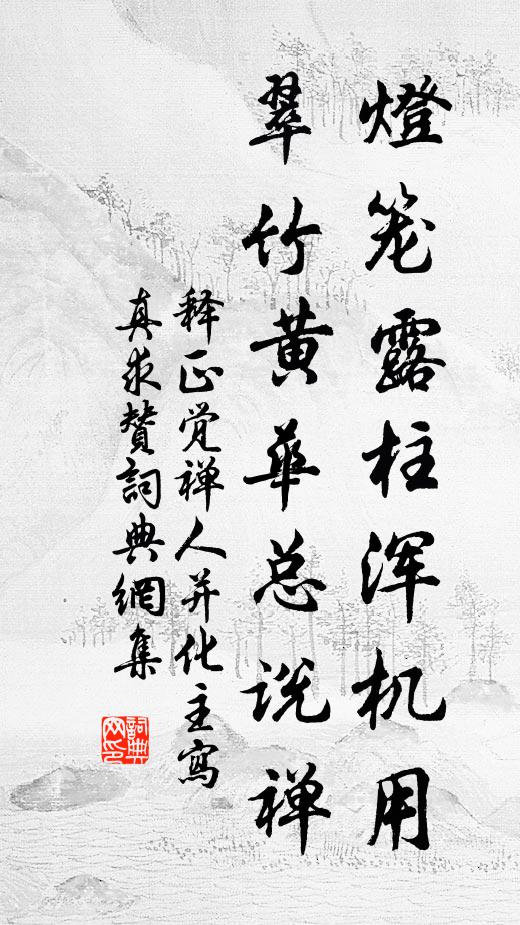 燈笼露柱浑机用
翠竹黄华总说禅
释正觉禅人并化主寫
真求赞詞典網集
詞典網印